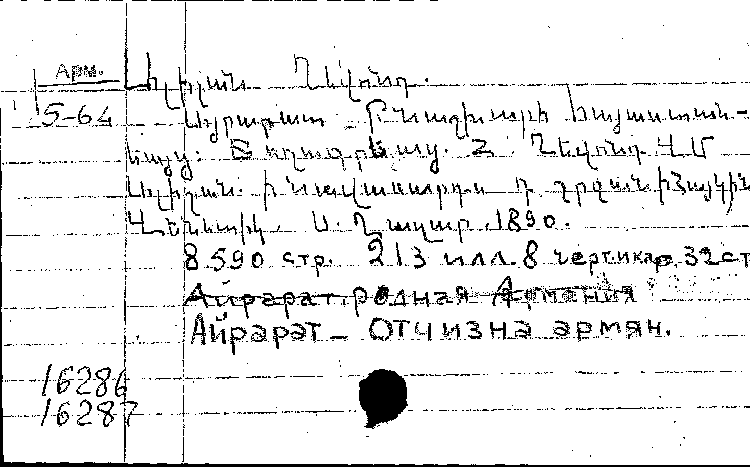 Арм. Ալիշան Ղեվոնդ.
5-64 Այրարատ - Բնաշխարհ Հայաստան-
եայց: Տեղագրեաց. Հ. Ղեվոնդ Վ.Մ
Ալիշան.
Վենետիկ. Ս. Ղազար. 1890.
8 590 стр. 213 илл. 8 черт. и кар. 32 ст
Айрарат. родная Армения
Айрарат - Отчизна армян.
16286
16287